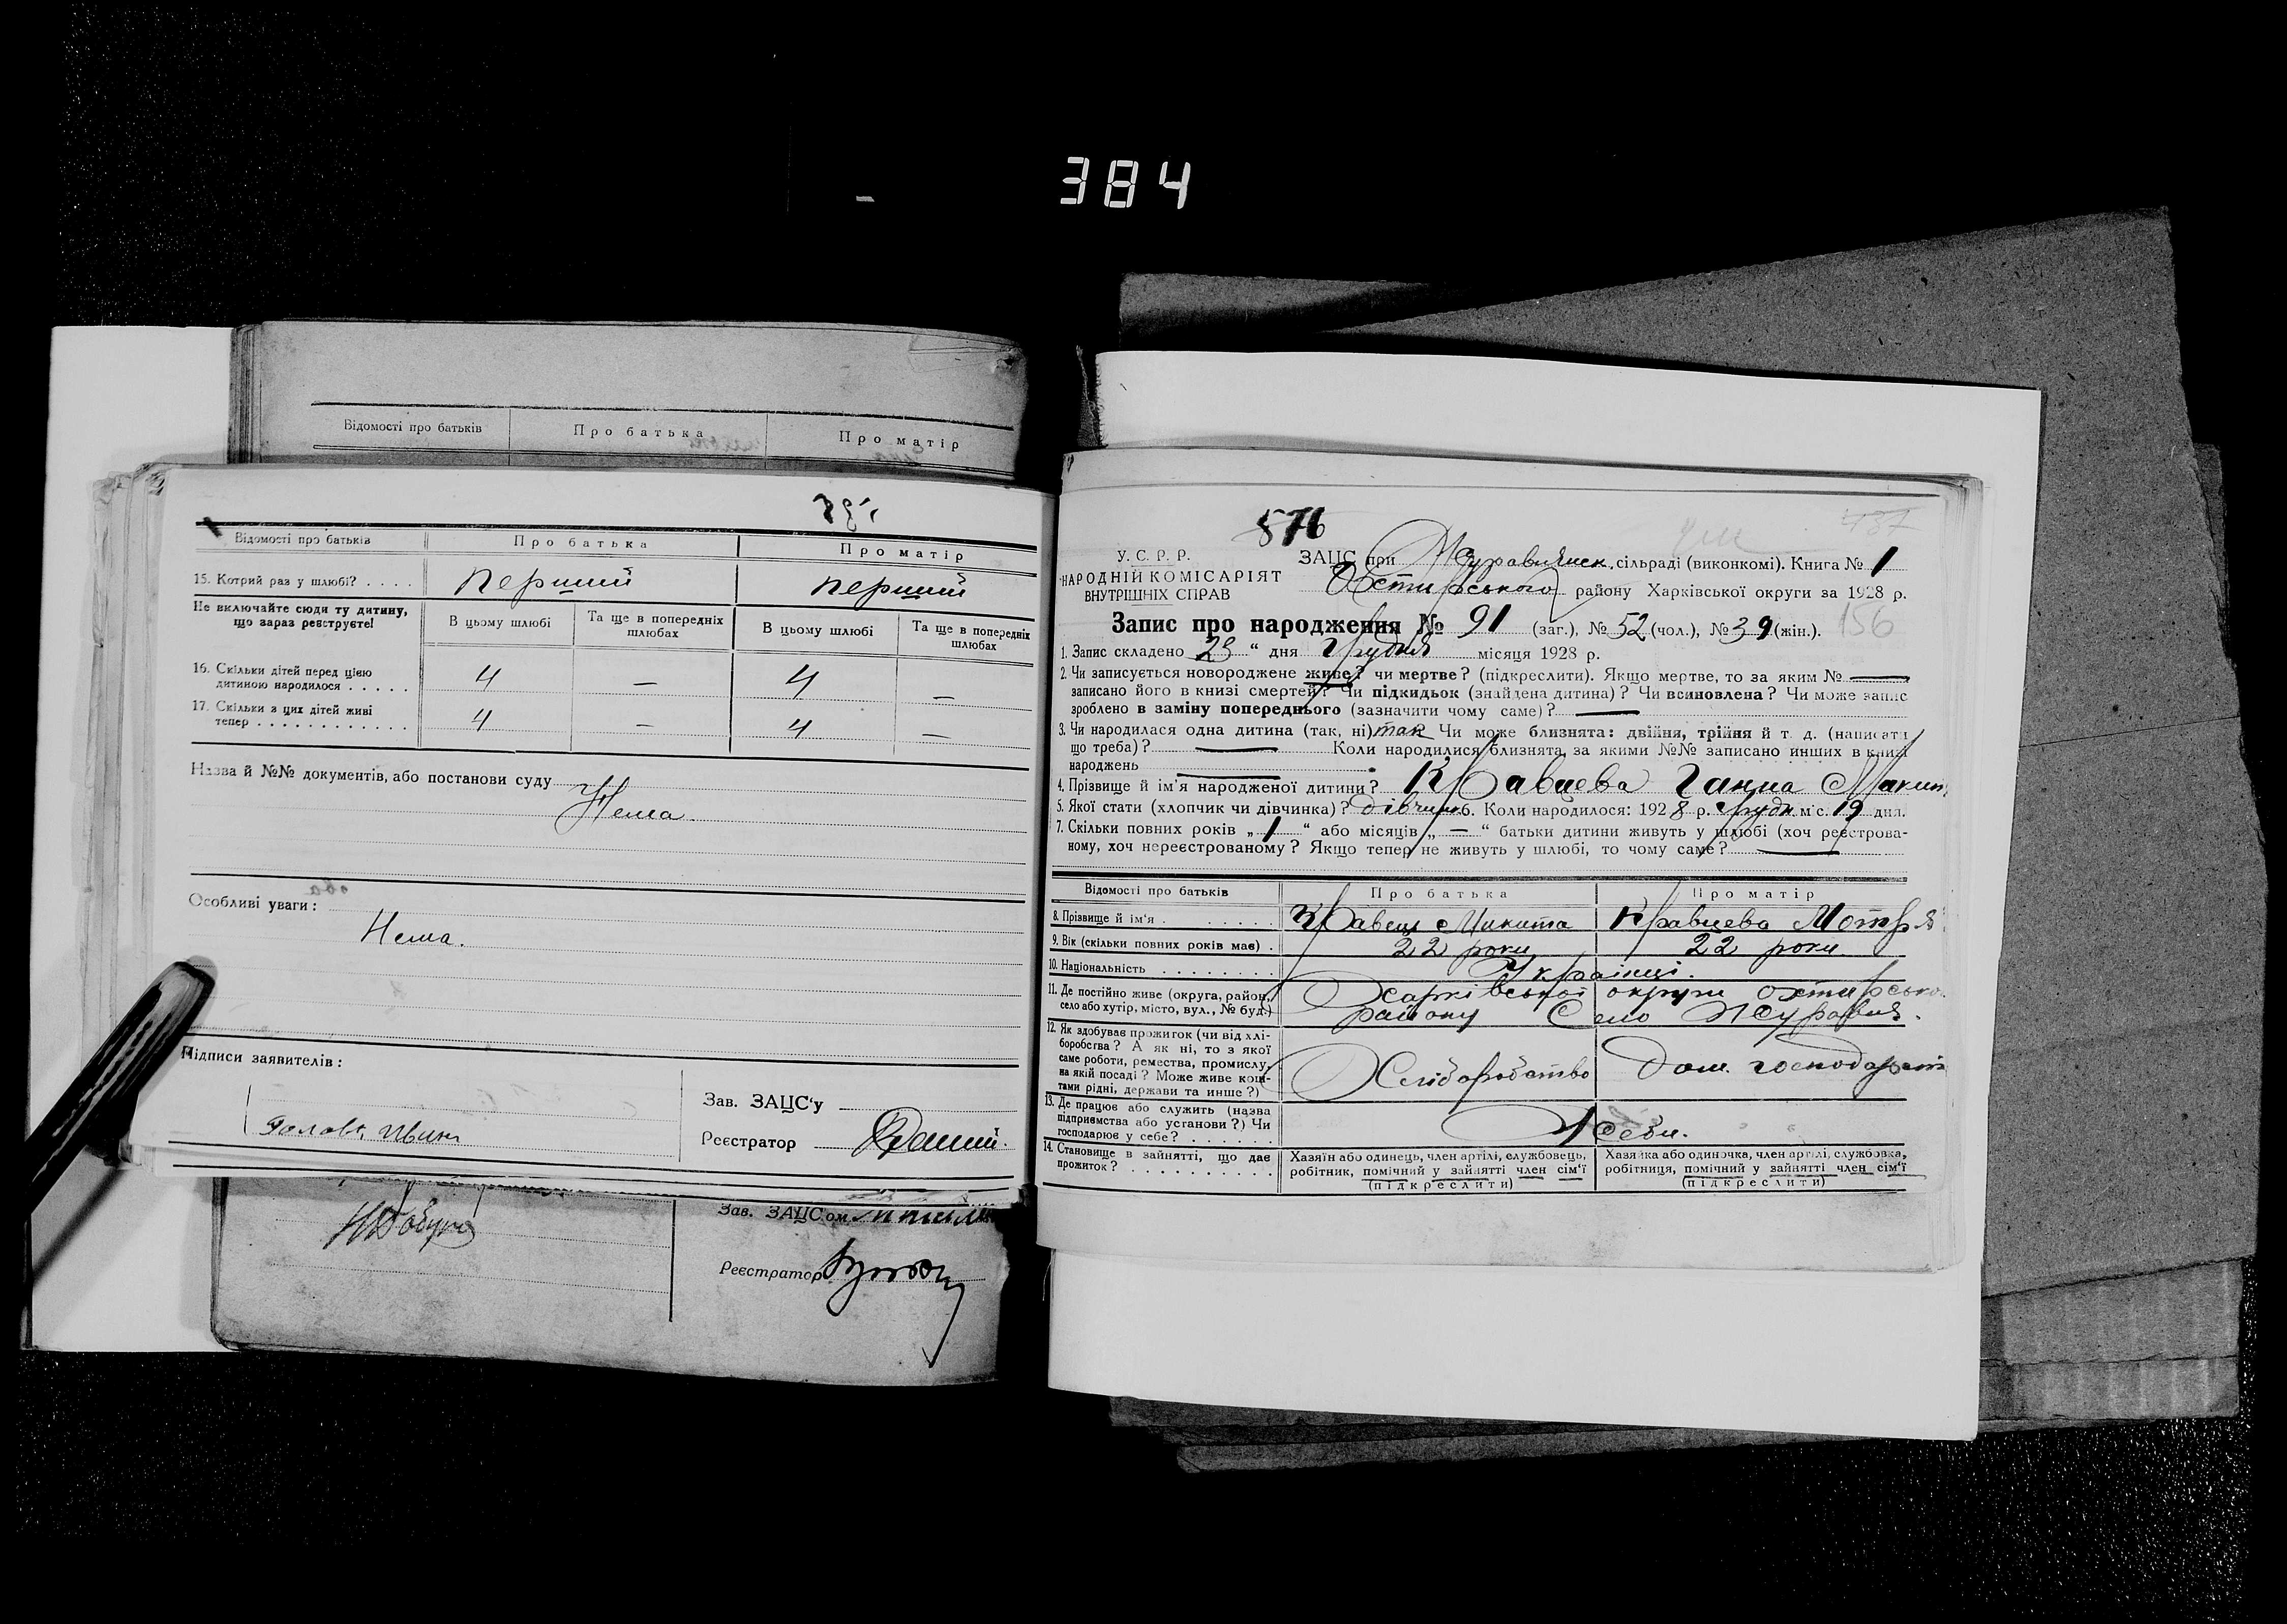 384
Відомості про батьків Про батька Про матір
Відомості про батьків Про батька Про матір
15. Котрий раз у шлюбі? . . . . перший перший
Не включайте сюди ту дитину, що зараз реєструєте! В цьому шлюбі Та ще в попередніх шлюбах В цьому шлюбі Та ще в попередніх шлюбах
16. Скільки дітей перед цією
дитиною народилося . . . . . 4 — 4 —
17. Скільки з цих дітей живі
тепер . . . . . . . . . . . . 4 — 4 —
Назва й №№ документів, або постанови суду
Нема.
Особливі уваги:
Нема.
Підписи заявителів:
Зав. ЗАЦС'у
Реєстратор
Зав. ЗАЦС'ом
Реєстратор
576
437
У. С. Р. Р.
НАРОДНІЙ КОМІСАРІЯТ
ВНУТРІШНІХ СПРАВ
ЗАЦС при Журавлинск. сільраді (виконкомі). Книга № 1
Охтирського району Харківської округи за 1928 р.
Запис про народження № 91 (заг.), № 52 (чол.), № 39 (жін.). 156
1. Запис складено 23 “ дня Грудня місяця 1928 р.
2. Чи записується новороджене живе? чи мертве? (підкреслити). Якщо мертве, то за яким № —
записано його в книзі смертей? Чи підкидьок (знайдена дитина)? Чи всиновлена? Чи може запис
зроблено в заміну попереднього (зазначити чому саме)? —
3. Чи народилася одна дитина (так, ні) так Чи може близнята: двійня, трійня й т. д. (написати
що треба)? — Коли народилися близнята, за якими №№ записано инших в книзі
народжень —
4. Прізвище й ім'я народженої дитини? Кравцева Ганна Микит
5. Якої стати (хлопчик чи дівчинка)? дівчинк 6. Коли народилося: 1928 р. Грудн м-с. 19 дня.
7. Скільки повних років „ 1 “ або місяців „ — “ батьки дитини живуть у шлюбі (хоч реєстрова-
ному, хоч нереєстрованому? Якщо тепер не живуть у шлюбі, то чому саме? —
Відомості про батьків Про батька Про матір
8. Прізвище й ім'я . . . . . . . . Кравець Микита Кравцева Мотря
9. Вік (скільки повних років має) . 22 роки 22 роки.
10. Національність . . . . . . . . Українці.
11. Де постійно живе (округа, район, Харківської округи Охтирсько
село або хутір, місто, вул., № буд.) району Село Журавля.
12. Як здобуває прожиток (чи від хлі-
боробства? А як ні, то з якої
саме роботи, ремества, промислу,
на якій посаді? Може живе кош-
тами рідні, держави та инше?)
Хліборобство Дом. господарств
13. Де працює або служить (назва
підприємства або установи?) Чи
господарює у себе? . . . . . .
У себе.
14. Становище в зайнятті, що дає
прожиток? . . . . . . . . . .
Хазяїн або одинець, член артілі, службовець,
робітник, помічний у зайнятті член сім'ї
(підкреслити)
Хазяйка або одиночка, член артілі, службовка,
робітниця, помічний у зайнятті член сім'ї
(підкреслити)